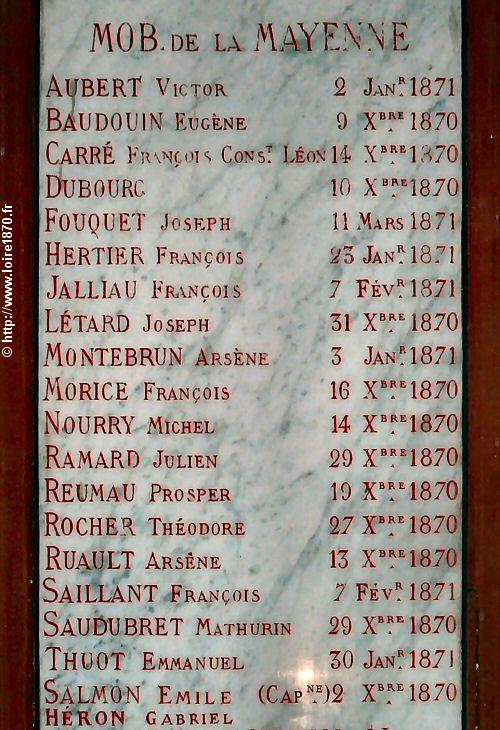 MOB. DE LA MAYENNE
AUBERT VICTOR 2 JANR. 1871
BAUDOUIN EUGÈNE 9 XBRE. 1870
CARRÉ FRANÇOIS CONST. LÉON 14 XBRE. 1870
DUBOURG 10 XBRE. 1870
FOUQUET JOSEPH 11 MARS 1871
HERTIER FRANÇOIS 23 JANR. 1871
JALLIAU FRANÇOIS 7 FÉVR. 1871
LÉTARD JOSEPH 31 XBRE. 1870
MONTEBRUN ARSÈNE 3 JANR. 1871
MORICE FRANÇOIS 16 XBRE. 1870
NOURRY MICHEL 14 XBRE. 1870
RAMARD JULIEN 29 XBRE. 1870
REUMAU PROSPER 19 XBRE. 1870
ROCHER THÉODORE 27 XBRE. 1870
RUAULT ARSÈNE 13 XBRE. 1870
SAILLANT FRANÇOIS 7 FÉVR. 1871
SAUDUBRET MATHURIN 29 XBRE. 1870
THUOT EMMANUEL 30 JANR. 1871
SALMON EMILE (CAPNE.) 2 XBRE. 1870
HÉRON GABRIEL
© http://www.loire1870.fr